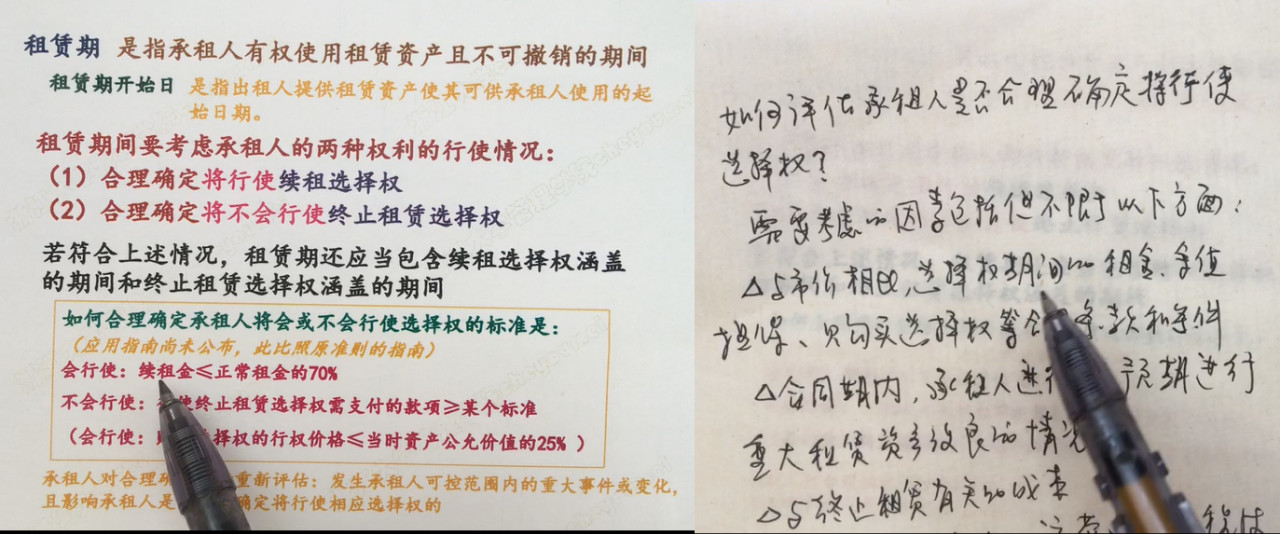 租赁期 是指承租人有权使用租赁资产且不可撤销的期间
租赁期开始日 是指出租人提供租赁资产使其可供承租人使用的起
始日期。
租赁期间要考虑承租人的两种权利的行使情况：
（1）合理确定将行使续租选择权
（2）合理确定将不会行使终止租赁选择权
若符合上述情况，租赁期还应当包含续租选择权涵盖
的期间和终止租赁选择权涵盖的期间
如何合理确定承租人将会或不会行使选择权的标准是：
（应用指南尚未公布，此比照原准则的指南）
会行使：续租金≤正常租金的70%
不会行使： 使终止租赁选择权需支付的款项≥某个标准
（会行使： 择权的行权价格≤当时资产公允价值的25% ）
承租人对合理确 重新评估：发生承租人可控范围内的重大事件或变化，
且影响承租人是 确定将行使相应选择权的
如何评估承租人是否合理确定将行使
选择权？
需要考虑的因素包括但不限于以下方面：
△与市价相比,选择权期间的租金、余值
担保、 购买选择权等合 条款和条件
△合同期内,承租人进行 预期进行
重大租赁资产改良的情况
△与终止租赁有关的成本